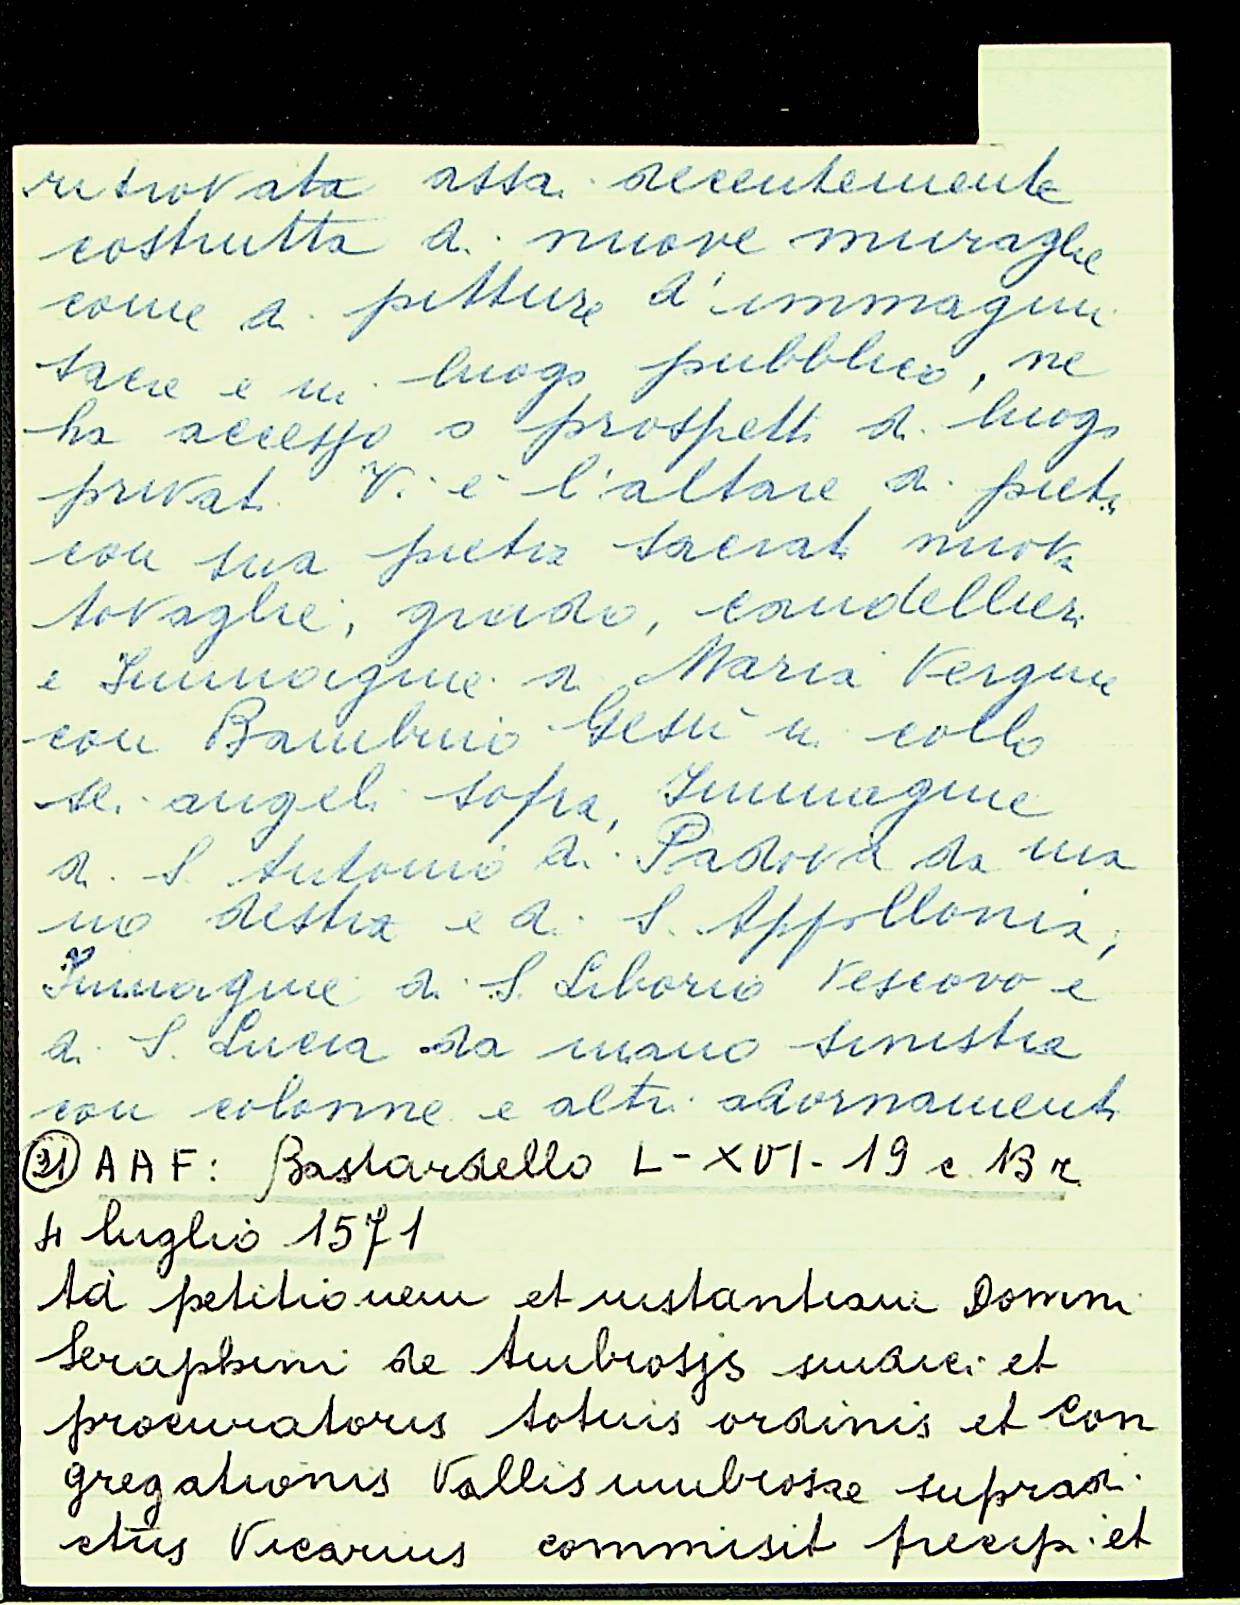 ritrovata assai decentemente
costrutta di nuove muraglie
come di pitture d'immagini
sacre e in luogo pubblico, ne
ha accesso o prospetti di luogo
privati. Vi è l'altare di pietr
con sua pietra sacrat nuova
tovaglie, grado, candellieri
e Immagine di Maria Vergine
con Bambino Gesù in collo
sei angeli sopra, Immagine
di S. Antonio di Padova da ma
no destra e di S. Appollonia,
Immagine di S. Liborio Vescovo e
di S. Lucia da mano sinistra
con colonne e altri adornamenti
31 AAF: Bastardello L-XVI-19 c. 13 r
4 luglio 1571
Ad petitionem et instantiam Domini
Seraphini de Ambrosijs sindici et
procuratoris totius ordinis et con
gregationis Vallisumbrosae supradi
ctus Vicarius commisit precip. et